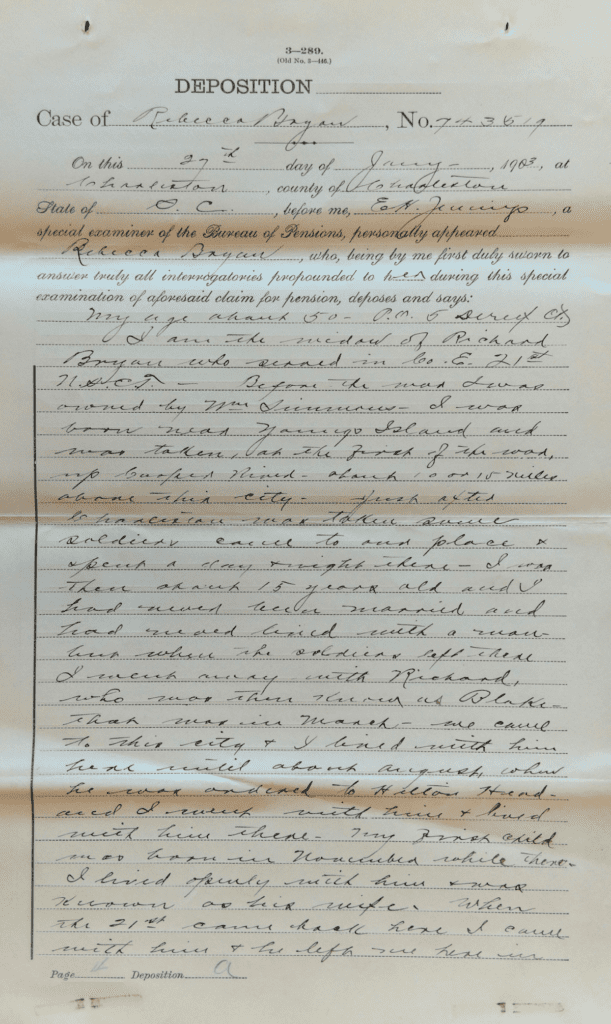 3—289.
(Old No. 3—446.)
DEPOSITION
Case of Rebecca Bryan, No. 743519
On this 27th day of Jany-, 1903, at
Charleston, county of Charleston
State of S. C., before me, E.H. Jennings, a
special examiner of the Bureau of Pensions, personally appeared
Rebecca Bryan, who, being by me first duly sworn to
answer truly all interrogatories propounded to her during this special
examination of aforesaid claim for pension, deposes and says:
My age about 50- P.O. 5
I am the widow of Richard
Bryan who served in Co. E. 21st
U.S.C.T. - Before the war I was
owned by Wm Simmons- I was
born near Youngs Island and
was taken, at the first of the war,
up Cooper River- about 10 or 15 miles
above this city- Just after
Charleston was taken some
soldiers came to our place &
spent a day & night there- I was
then about 15 years old and I
had never been married and
had never lived with a man
but when the soldiers left there
I went away with Richard,
who was then known as Blake-
that was in March- we came
to this city & I lived with him
here until about august, when
he was ordered to Hilton Head-
and I went with him & lived
with him there- My first child
was born in November while there-
I lived openly with him & was
known as his wife. When
the 21st came back here I came
with him & he left me here in
Page 4 Deposition a